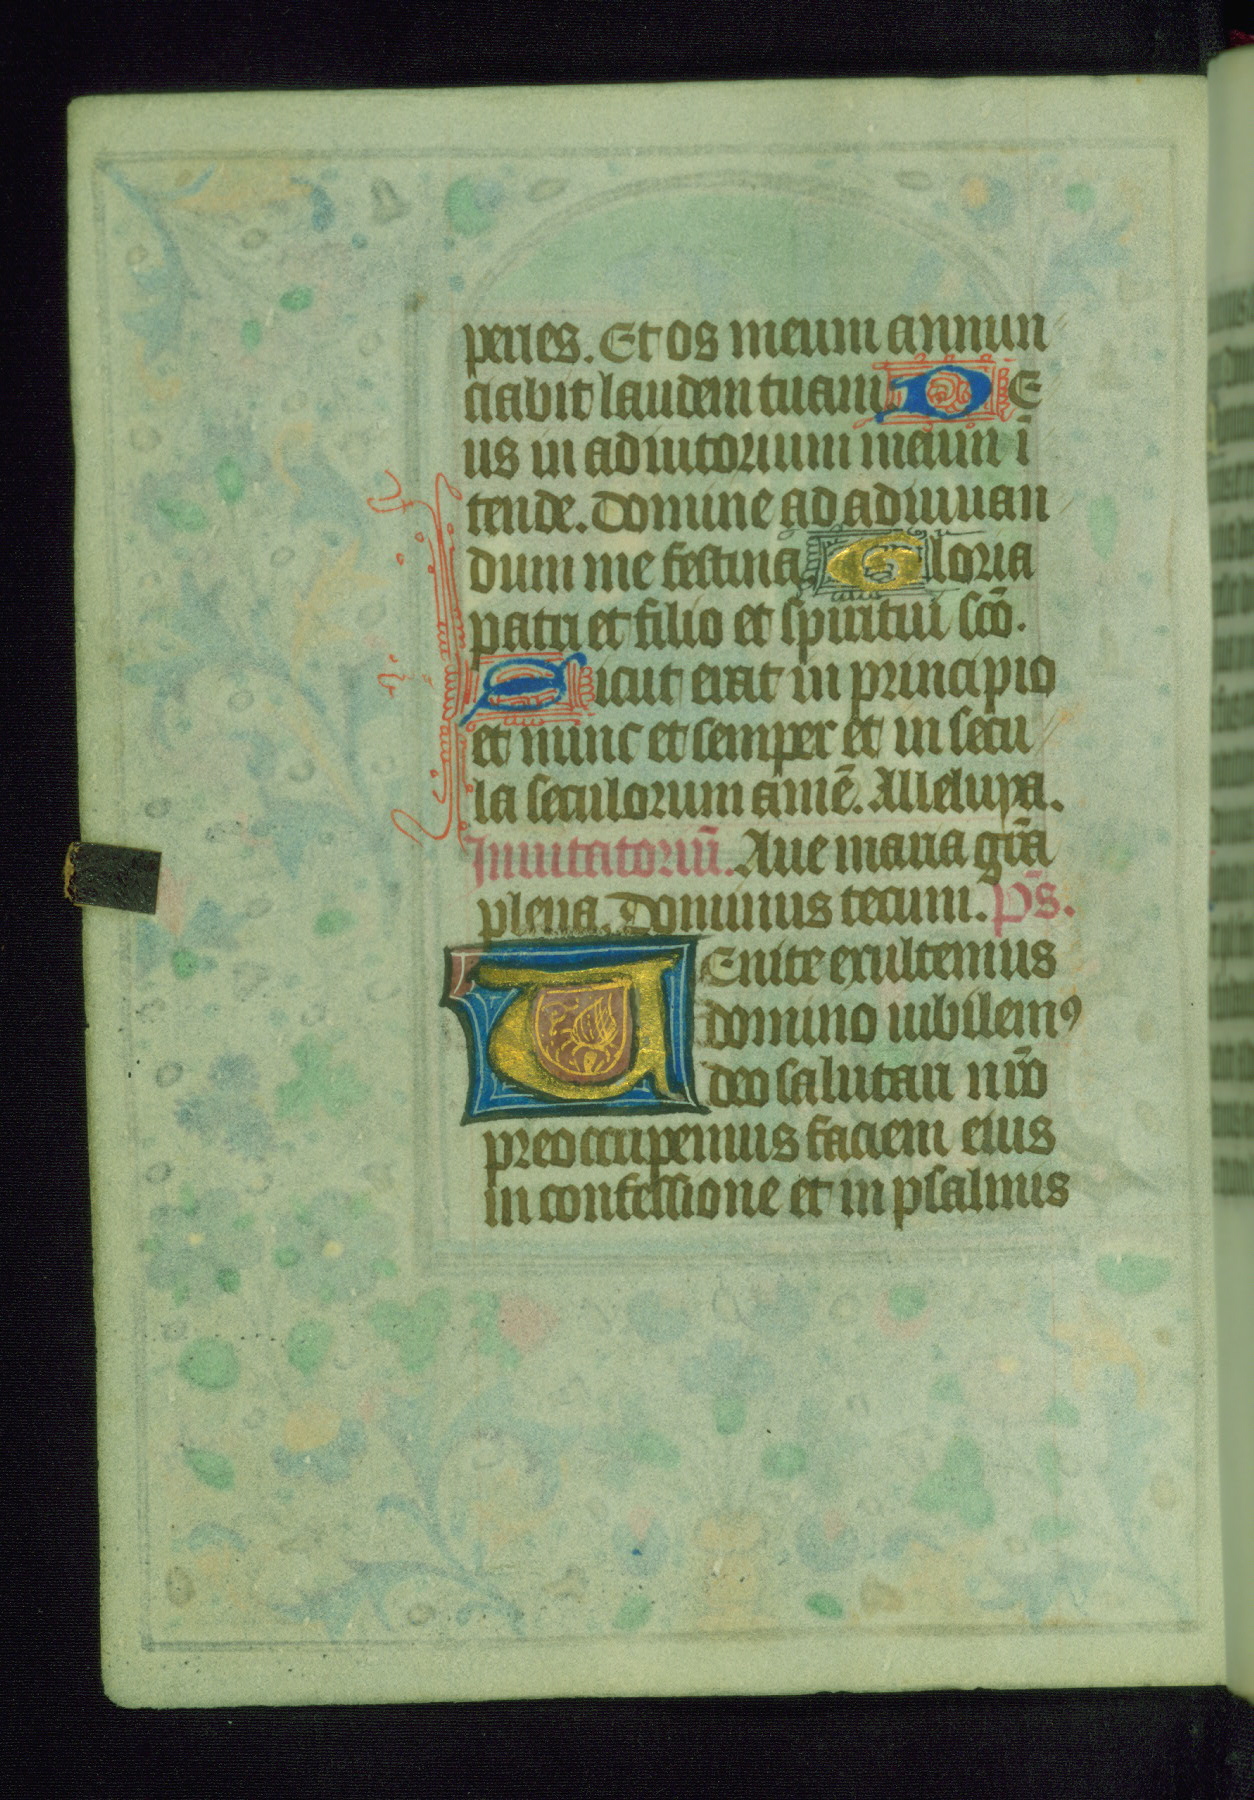 peries. Et os meum annun
ciabit laudem tuam DE
us in adiutorium meum ī
tende. Domine ad adiuuan
dum me festina Gloria
patri et filio et spiritui scō.
Sicut erat in principio
et nunc et semper et in secu
la seculorum amē. Alleluya.
Inuitatoriū. Aue maria grā
plena. Dominus tecum. Ps̄.
Uenite exultemus
domino iubilemꝰ
deo salutari nr̄o
preoccupemus faciem eius
in confessione et in psalmis